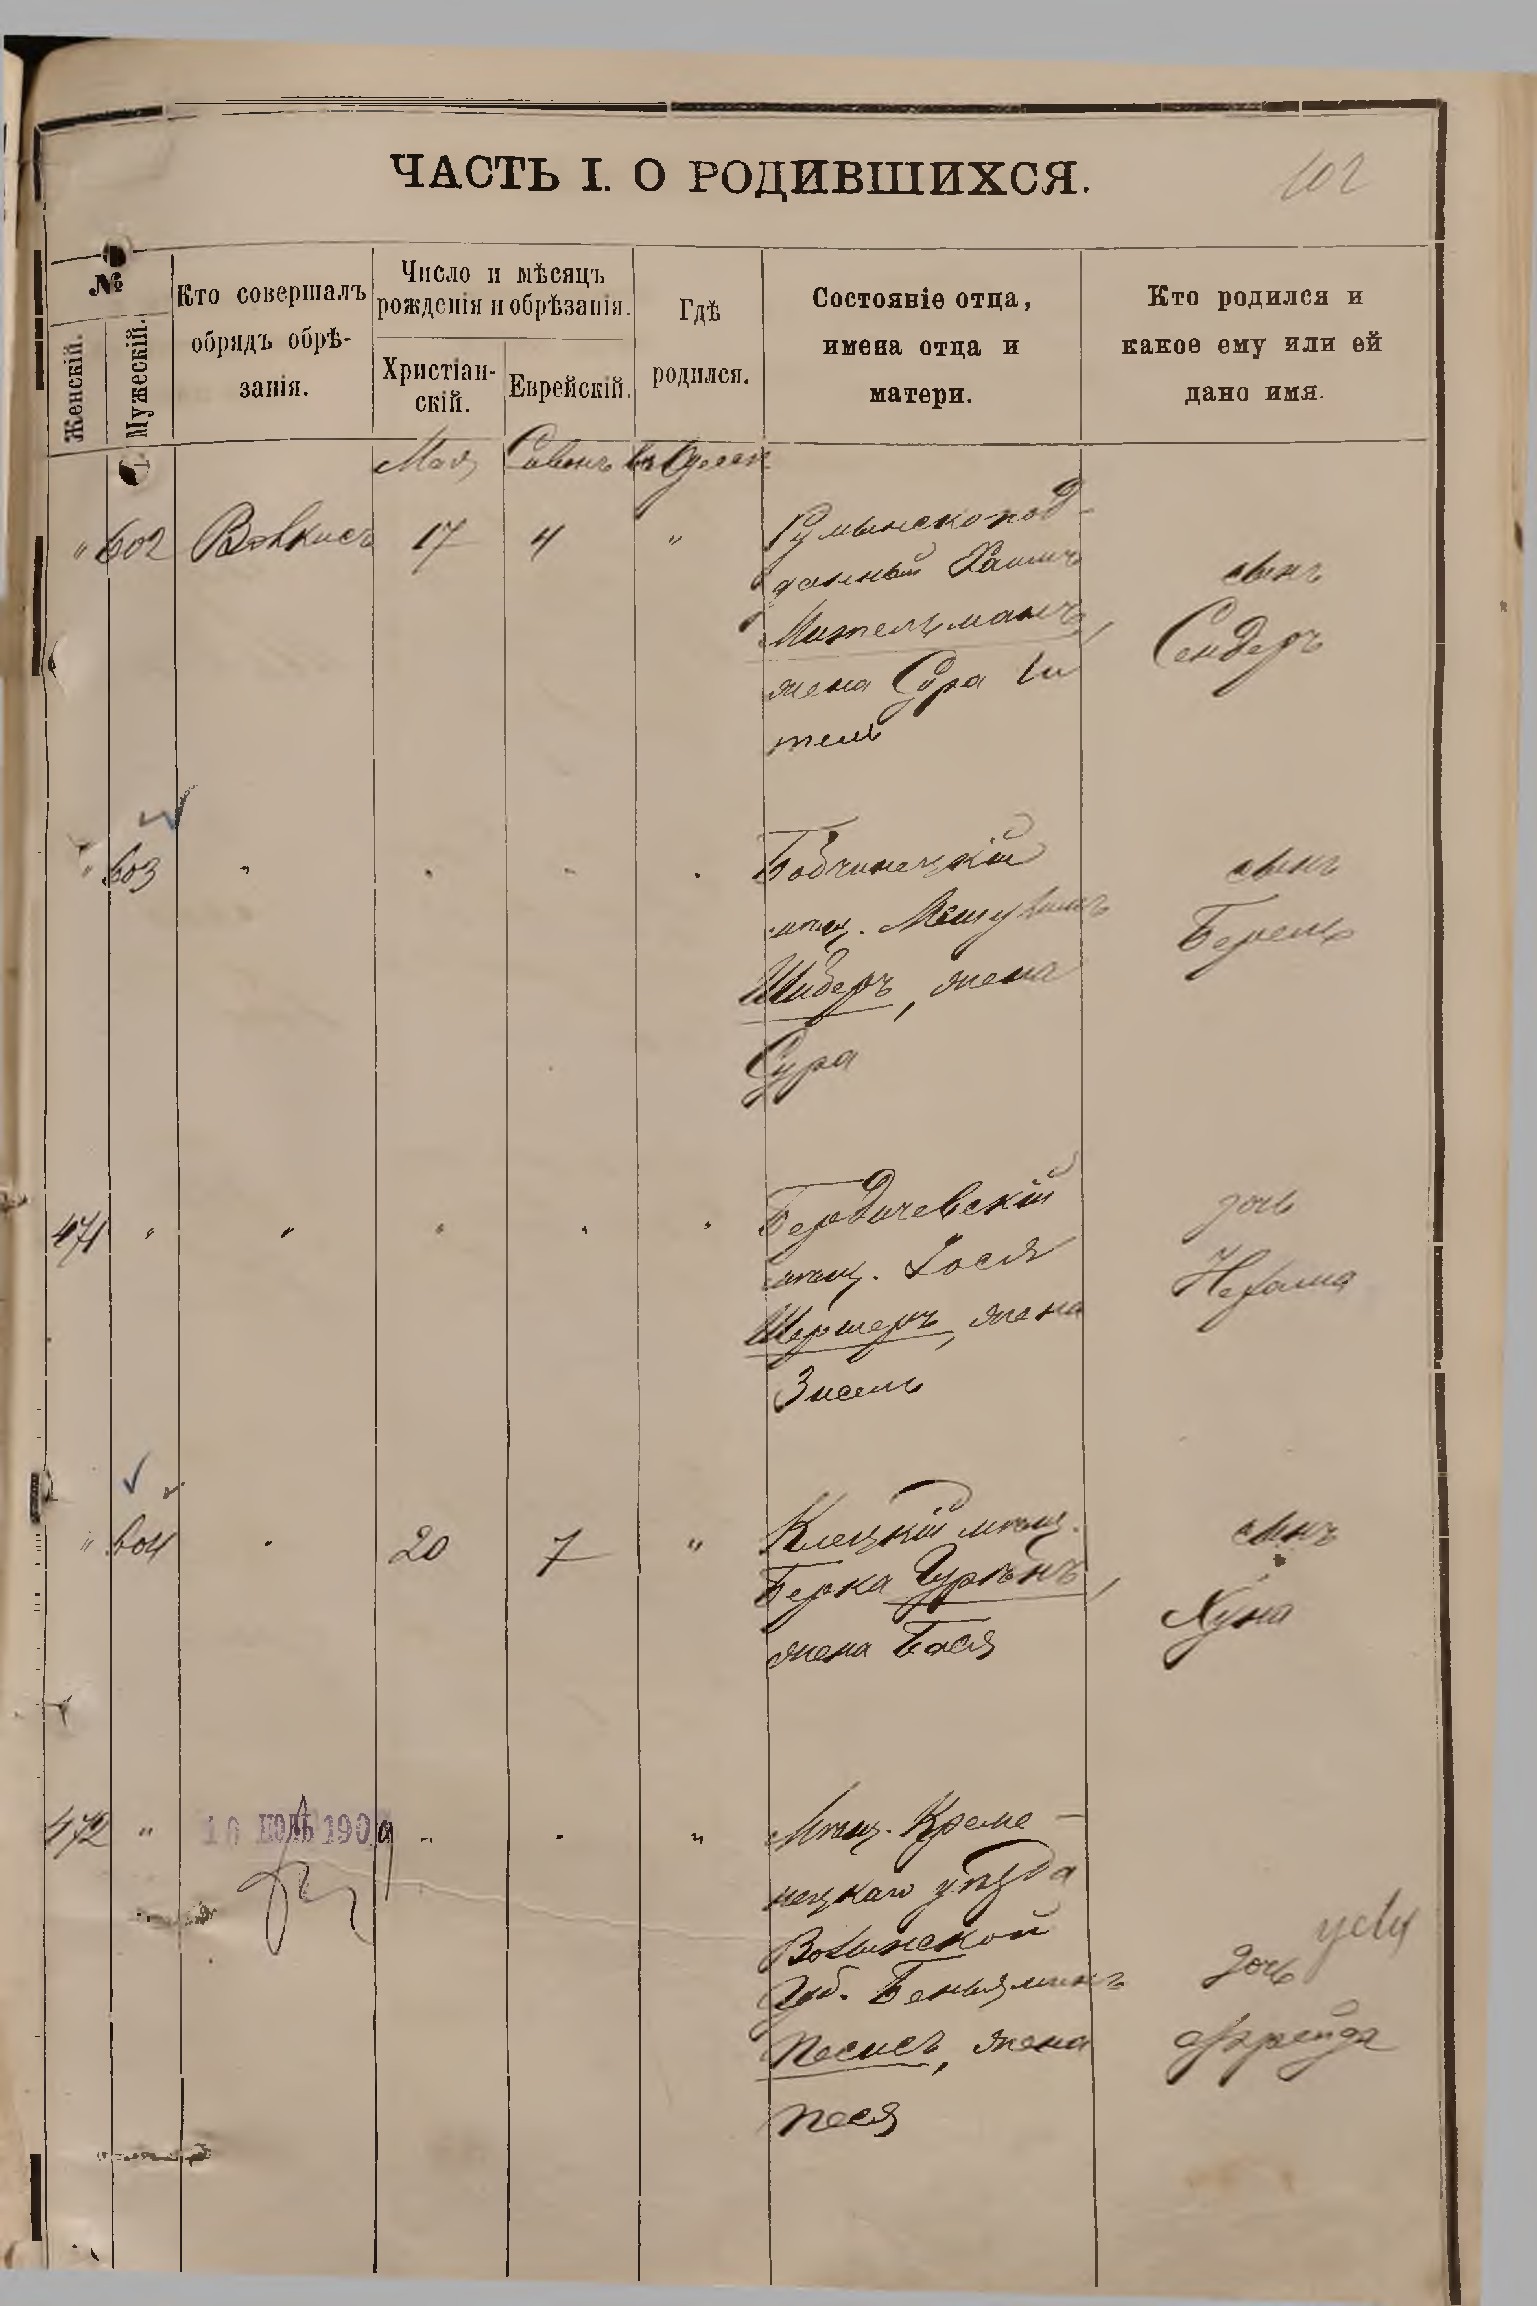 ЧАСТЬ I. О РОДИВШИХСЯ.
102
№
Женскій.
Мужескій.
Кто совершалъ
обрядъ обрѣ-
занія.
Число и мѣсяцъ
рожденія и обрѣзанія.
Христіан-
скій.
Еврейскій.
Гдѣ
родился.
Состояніе отца,
имена отца и
матери.
Кто родился и
какое ему или ей
дано имя.
Мая Сивонъ въ Одессѣ
" 602 17 4 "
Румынскопод-
данный Хаимъ
Мительманъ,
жена Сура
тель
сынъ
Сендеръ
" 603 " " " "
Бобринецкій
мѣщ.
Шиберъ, жена
Сура
сынъ
Берель
471 " " " " "
Бердичевскій
мѣщ. Іосъ
Шерперъ, жена
Зисель
дочь
Нехама
" 604 " 20 7 "
Клецкій мѣщ.
Берка Гурѣнъ,
жена Бася
сынъ
Хуна
472 " 10 ІЮЛЬ 1909 " " "
Мѣщ. Креме-
нецкаго уѣзда
Волынской
Губ. Беньяминъ
Песисъ, жена
Песя
дочь
Фрейда